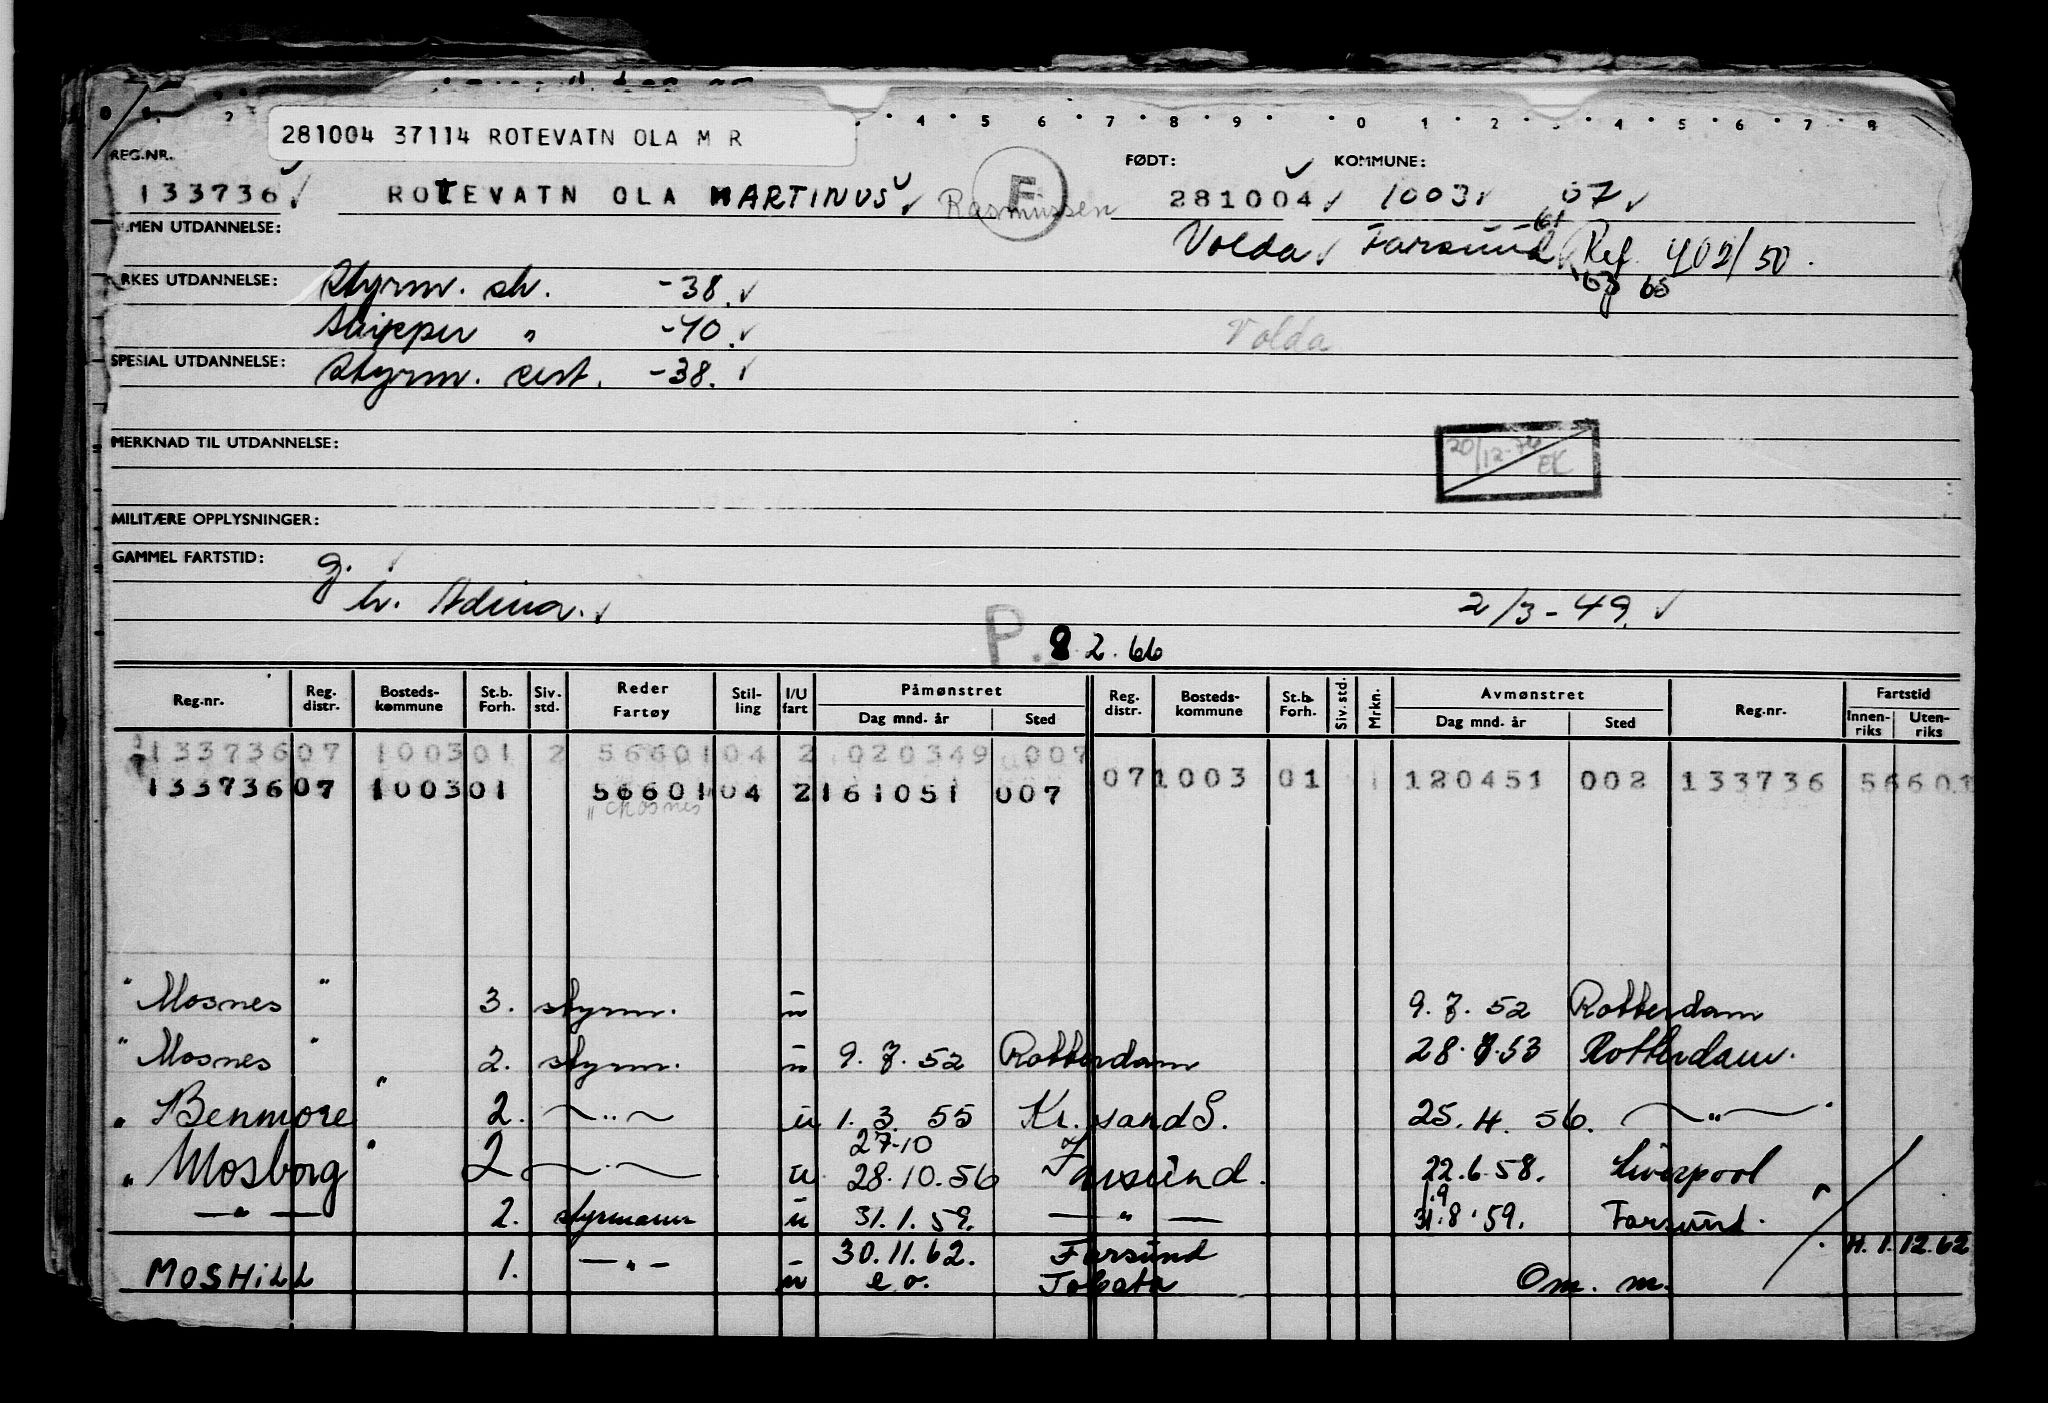 281004 37114 ROTEVATN OLA M R
REG.NR. FØDT: KOMMUNE:
133736 ROTEVATN OLA MARTINUS Rasmussen F 281004 1003 07
MEN UTDANNELSE: Volda Farsund 61 Ref. 402/50.
RKES UTDANNELSE: Styrm. sk. -38. 63 65
Skipper " -40. Volda
SPESIAL UTDANNELSE: Styrm. cert. -38.
MERKNAD TIL UTDANNELSE: 20/12-74 EK
MILITÆRE OPPLYSNINGER:
GAMMEL FARTSTID: g.
h. Adina. 2/3-49.
P. 8.2.66
Reg.nr. Reg. distr. Bosteds- kommune St.b. Forh. Siv. std. Reder Fartøy Stil- ling I/U fart Påmønstret Dag mnd. år Sted Reg. distr. Bosteds- kommune St.b. Forh. Siv. std. Mrkn. Avmønstret Dag mnd. år Sted Reg.nr. Fartstid Innen- riks Uten- riks
133736 07 1003 01 2 56601 04 2 020349 007 07 1003 01 1 120451 002 133736 56601
133736 07 1003 01 56601 04 2 161051 007
" Mosnes
" Mosnes " 3. styrm. u 9.7.52 Rotterdam
" Mosnes " 2. styrm. u 9.7.52 Rotterdam 28.7.53 Rotterdam.
" Benmore " 2. —"— u 1.3.55 Kr.sand S. 25.4.56. —"—
27-10
" Mosborg " 2 —"— u 28.10.56 Farsund. 22.6.58. Liverpool
1.9
—"— 2. styrmann u 31.1.59. —"— 31.8.59. Farsund.
30.11.62. Farsund H. 1.12.62
MOSHILL 1. —"— u e.o. Tobata Om. m.